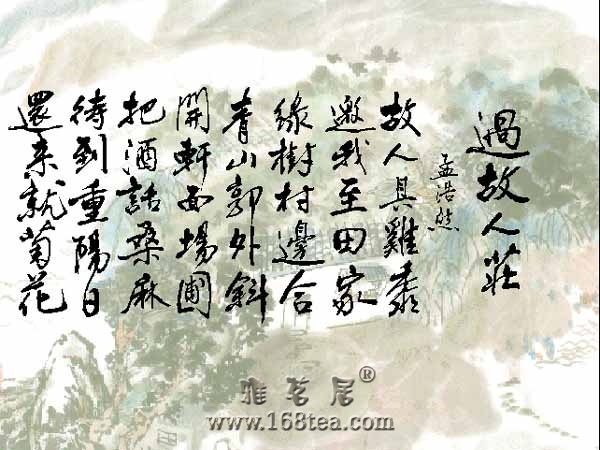 過故人莊
孟浩然
故人具雞黍
邀我至田家
綠樹村邊合
青山郭外斜
開軒面場圃
把酒話桑麻
待到重陽日
還来就菊花
雅茗居®
www.168tea.com